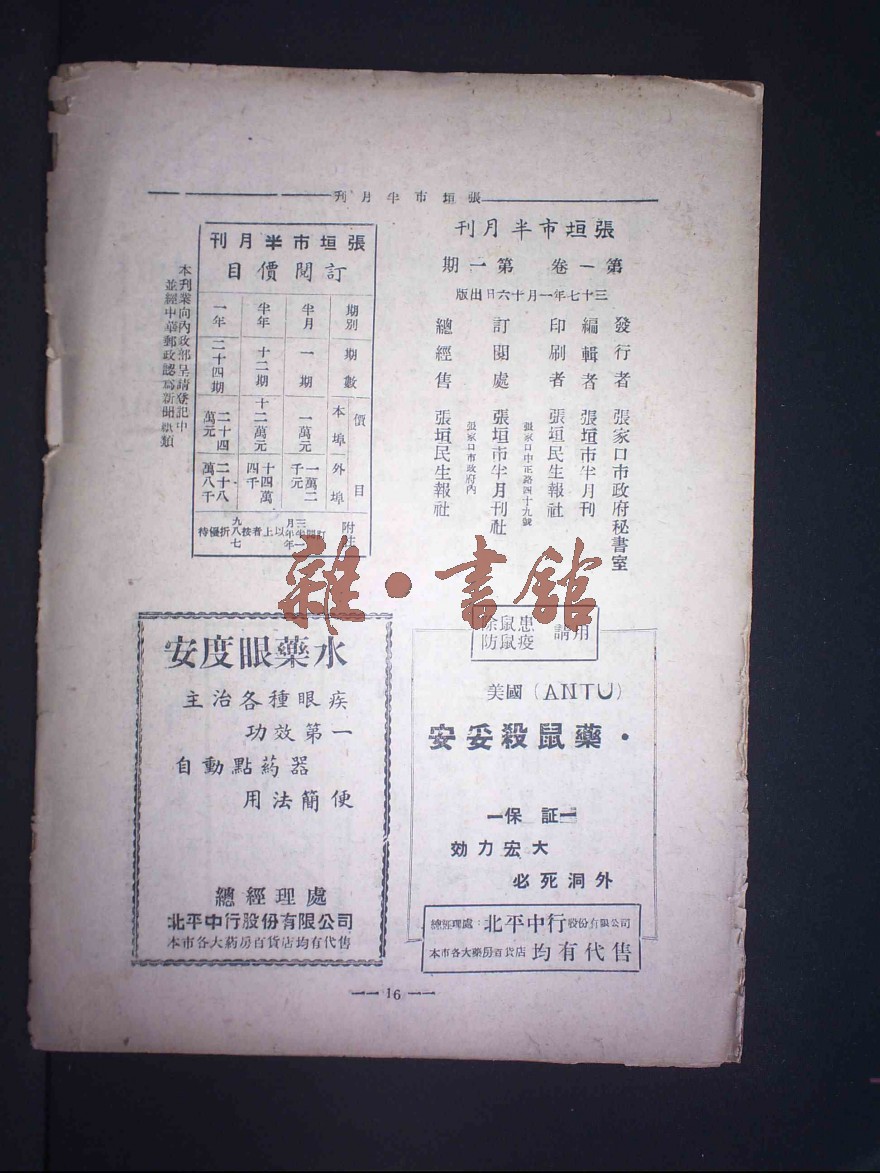 張垣市半月刊
張垣市半月刊
第一卷 第一期
三十七年一月十六日出版
發行者 張家口市政府秘書室
編輯者 張垣市半月刊
印刷者 張垣民生報社
張家口中正路四十九號
訂閱處 張垣市半月刊社
張家口市政府內
總經售 張垣民生報社
張垣市半月刊
訂閱價目
期別 期數 價目 本埠 外埠
半月 一期 一萬元 一萬二千元
半年 十二期 十二萬元 十四萬四千
一年 二十四期 二十四萬元 二十八萬八千
附註 訂閱三月半年一年以上者按九八七折優待
本刊業向內政部呈請登記中
並經中華郵政認為新聞紙類
雜·書館
用請 除鼠患
防鼠疫
美國(ANTU)
安妥殺鼠藥
保証
效力宏大
必死洞外
總經理處:北平中行股份有限公司
本市各大藥房百貨店均有代售
安度眼藥水
主治各種眼疾
功效第一
自動點葯器
用法簡便
總經理處
北平中行股份有限公司
本市各大葯房百貨店均有代售
16